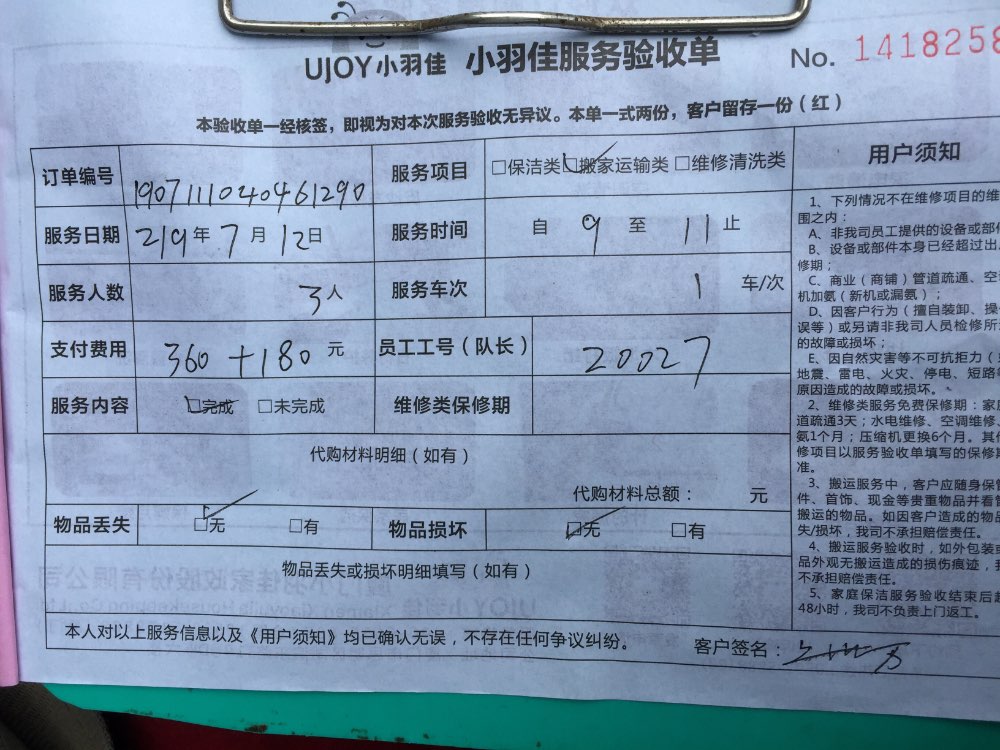 UJOY小羽佳 小羽佳服务验收单 No. 1418258
本验收单一经核签，即视为对本次服务验收无异议。本单一式两份，客户留存一份（红）
订单编号 1907111040461290 服务项目 □保洁类 ☑搬家运输类 □维修清洗类
服务日期 219年7月12日 服务时间 自 9 至 11 止
服务人数 3人 服务车次 1 车/次
支付费用 360+180 元 员工工号（队长） 20027
服务内容 ☑完成 □未完成 维修类保修期
代购材料明细（如有）
代购材料总额： 元
物品丢失 ☑无 □有 物品损坏 ☑无 □有
物品丢失或损坏明细填写（如有）
本人对以上服务信息以及《用户须知》均已确认无误，不存在任何争议纠纷。
客户签名：
用户须知
1、下列情况不在维修项目的维
围之内：
A、非我司员工提供的设备或部
B、设备或部件本身已经超过出
修期；
C、商业（商铺）管道疏通、空
机加氨（新机或漏氨）；
D、因客户行为（擅自装卸、操
误等）或另请非我司人员检修所
的故障或损坏；
E、因自然灾害等不可抗拒力（
地震、雷电、火灾、停电、短路
原因造成的故障或损坏。
2、维修类服务免费保修期：家
道疏通3天；水电维修、空调维修、
氨1个月；压缩机更换6个月。其
修项目以服务验收单填写的保修
准。
3、搬运服务中，客户应随身保
件、首饰、现金等贵重物品并看
搬运的物品。如因客户造成的物
失/损坏，我司不承担赔偿责任。
4、搬运服务验收时，如外包装
品外观无搬运造成的损伤痕迹，
不承担赔偿责任。
5、家庭保洁服务验收结束后
48小时，我司不负责上门返工。